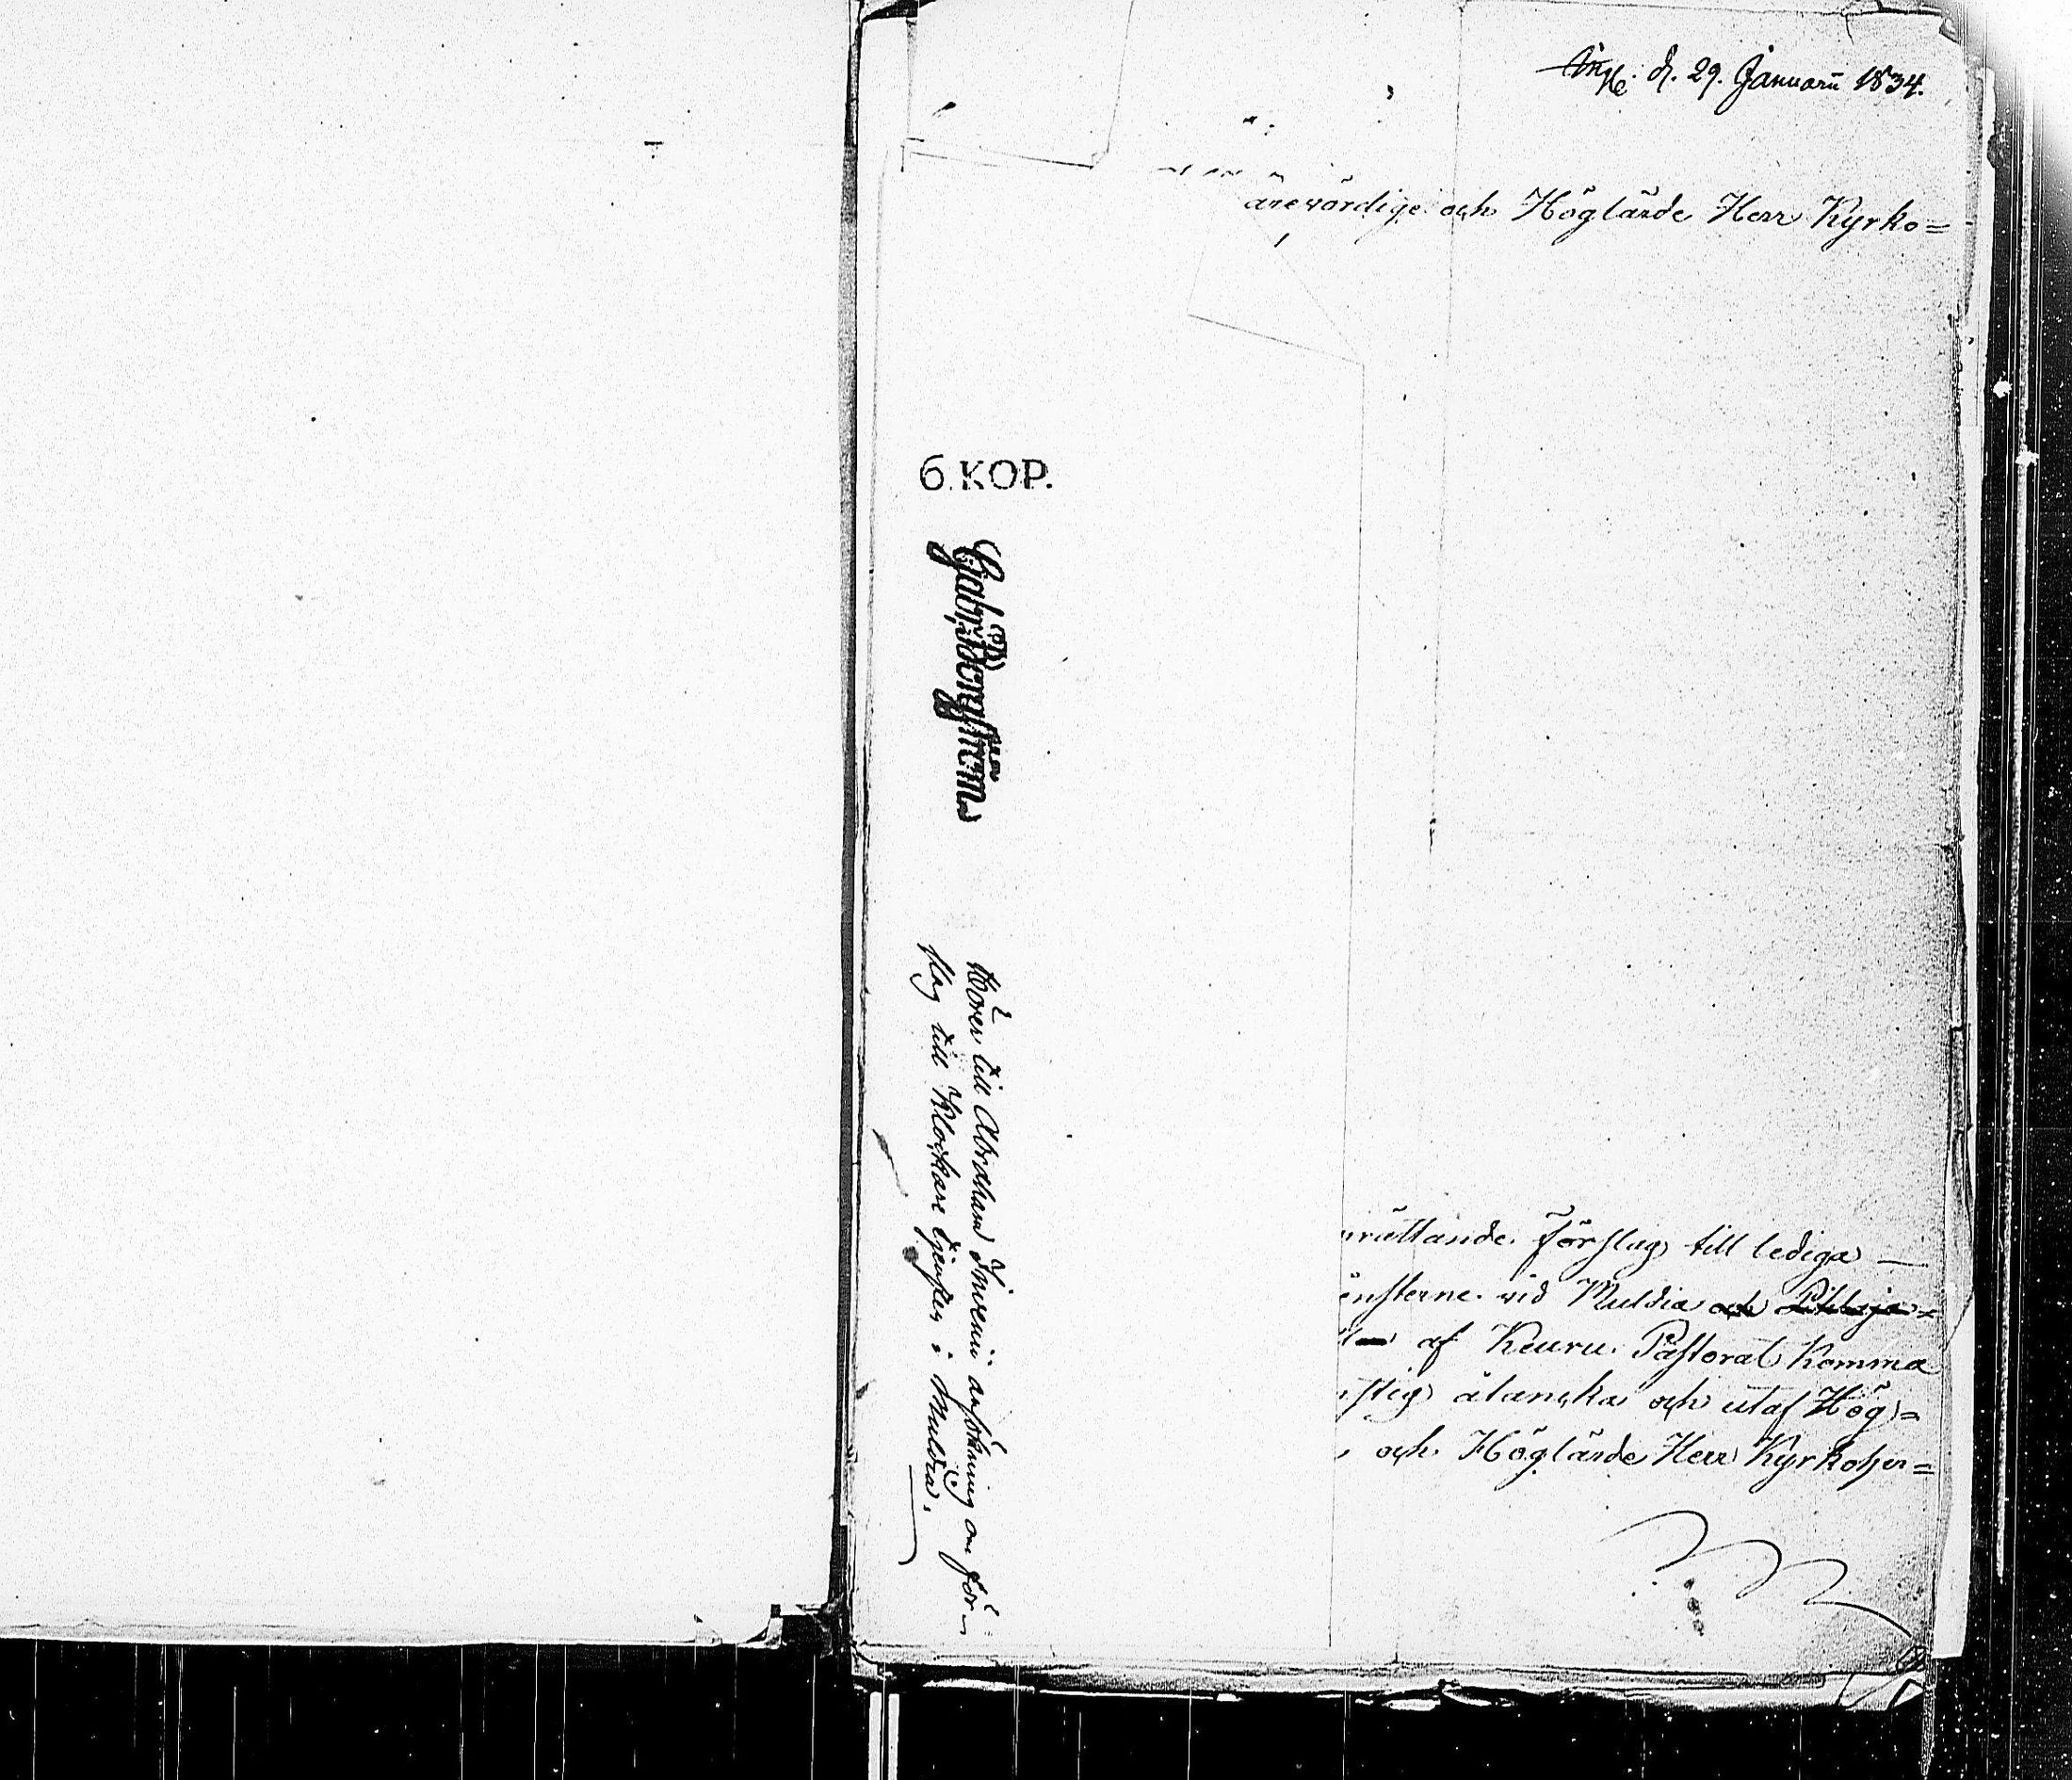 Ink. d. 29. Januarii 1834.
ärevördige och Höglärde Herr Kyrko=
6 KOP.
Hörer till Abraham Invenii ansökning om för-
slag till Klockare tjensten i Muldia.
rättande förslag till lediga
ensterne vid Muldia och
af Keuru Pastorat komma
stig åtanka och utaf Hög=
och Höglärde Herr Kyrkoher=